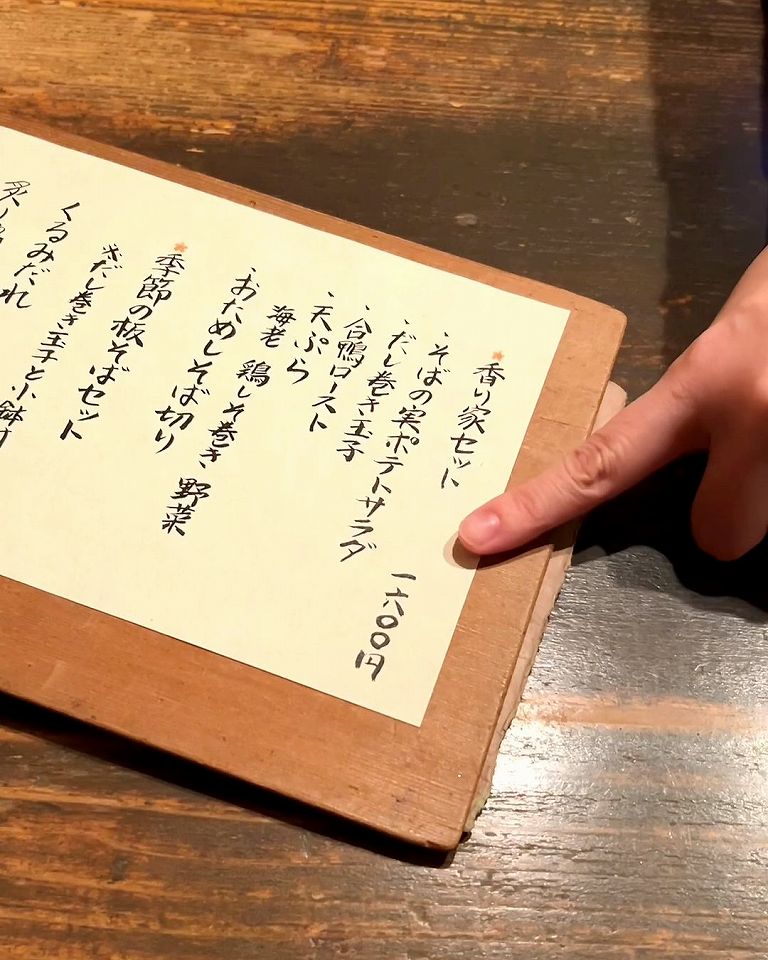 香り家セット
・そばの実ポテトサラダ
一六〇〇円
・だし巻き玉子
・合鴨ロースト
・天ぷら
海老 鶏しそ巻き 野菜
・おためしそば切り
季節の板そばセット
※だし巻き玉子と小鉢付
くるみだれ
炙り